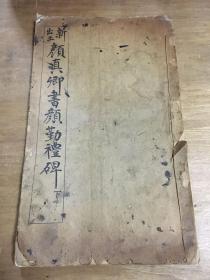 新出土
颜真卿書顏勤禮碑